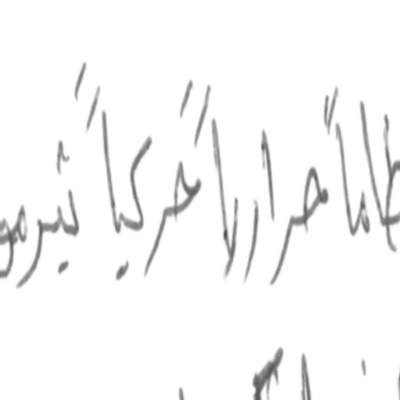 ظاماً حرارياً حركياً ثيرمو